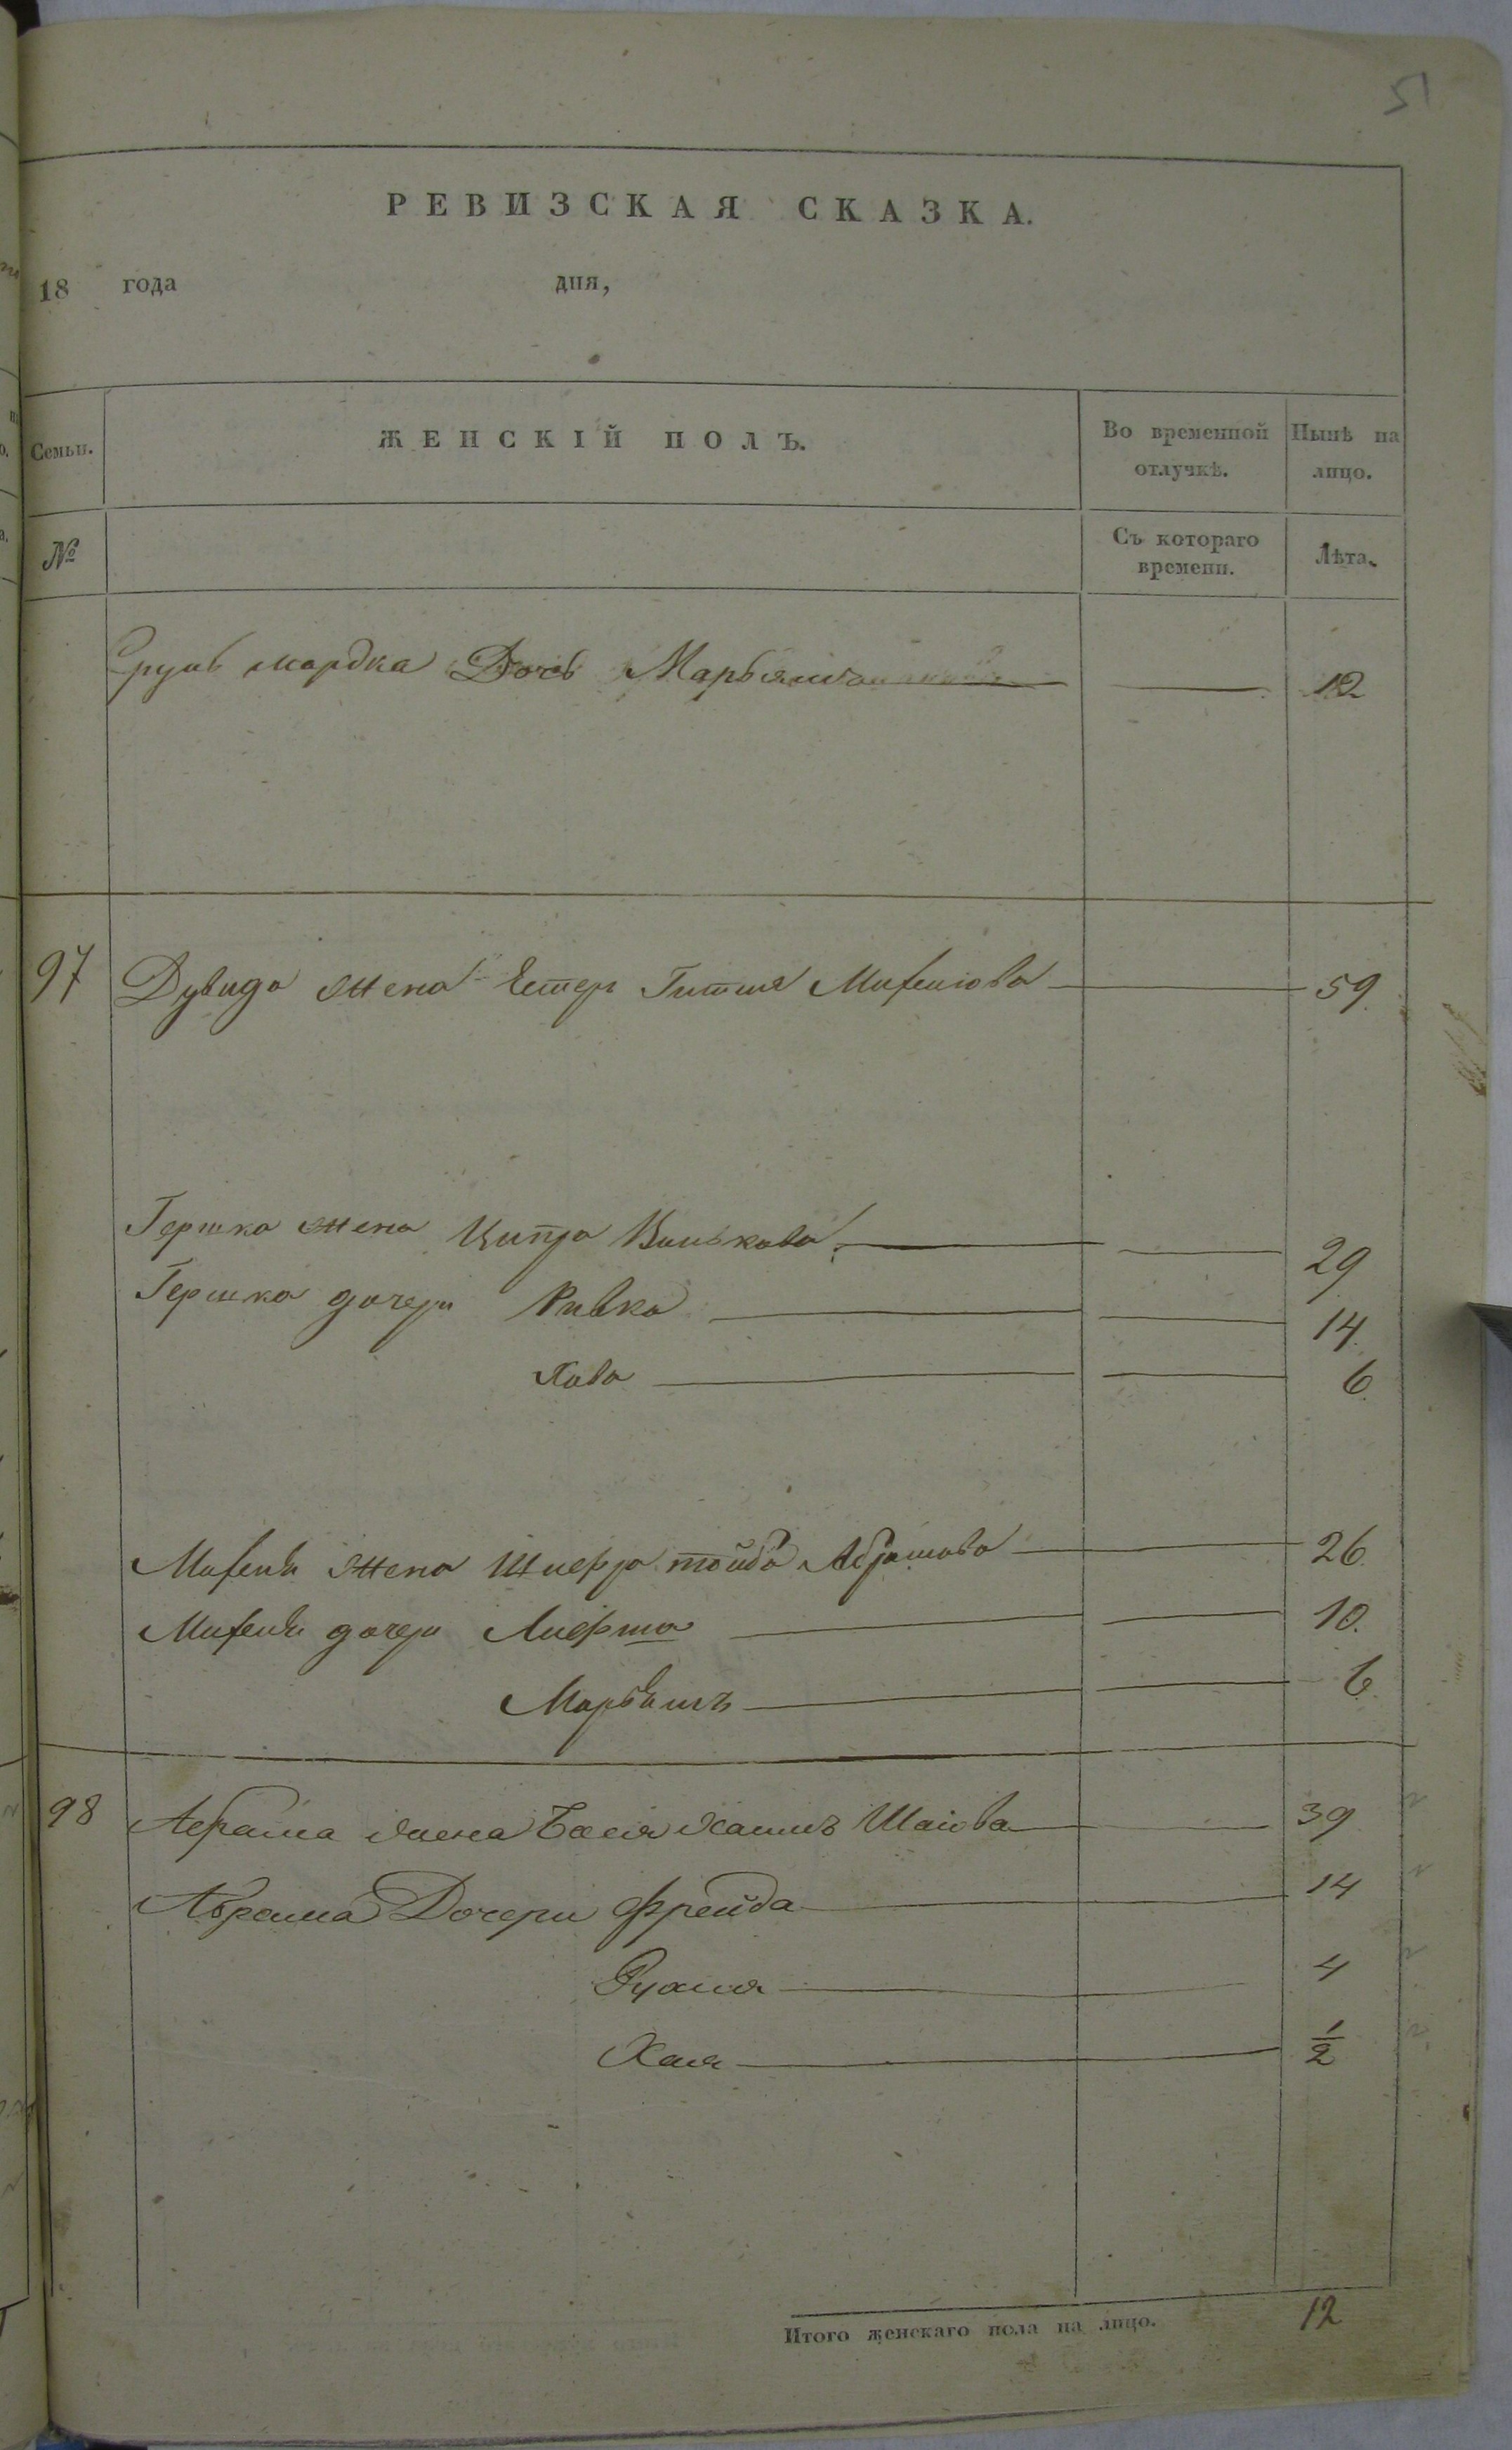 51
РЕВИЗСКАЯ СКАЗКА.
18 года дня,
Семьи. ЖЕНСКІЙ ПОЛЪ. Во временной отлучкѣ. Нынѣ на лицо.
№ Съ котораго времени. Лѣта.
мордка Дочь Марьяша 12
97 Дувида жена Естер Гитля Михелова 59
Гершка жена Ципра 29
Гершка дочери Ривка 14.
Хава 6
Михеля жена Шифра тойба Абрамова 26.
Михеля дочери 10.
Марьямъ 6.
98 Абрама жена Бася Шаiова 39
Абрама Дочери Фрейда 14
4
Хая 1/2
Итого женскаго пола на лицо. 12